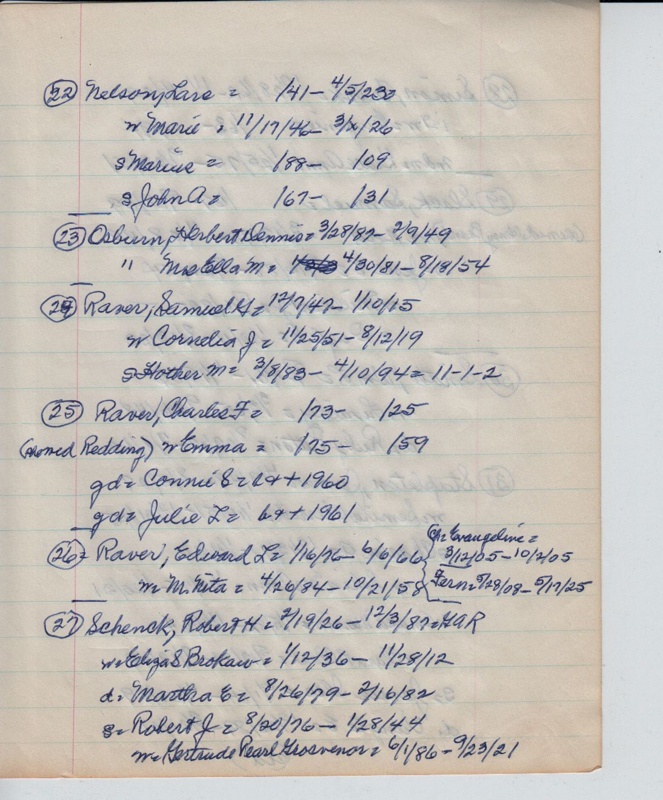 (22) Nelson, Lars = /41 – 4/5/23
w Marie = 11/17/46 – 3/x/26
s Marius = /88 – /09
s John A = /67 – /31
(23) Osburn, Herbert Dennis = 3/28/82 – 2/9/49
" Mrs Ella M = 4/30/81 – 8/18/54
(24) Raver, Samuel H = 12/7/47 – 1/10/15
w Cornelia J = 11/25/51 – 8/12/19
s Hother M = 3/8/83 – 4/10/94 = 11-1-2
(25) Raver, Charles F = /73 – /25
(Redding) w Emma = /75 – /59
gd = Connie S = b+d 1960
gd = Julie L = b+d 1961
(26) Raver, Edward L = 1/16/76 – 6/6/66 { Evangeline =
3/12/05 – 10/2/05
w = M. Neta = 4/26/84 – 10/21/58 Fern = 5/28/08 – 5/17/25
(27) Schenck, Robert H = 2/19/26 – 12/3/87 = GAR
w = Eliza S Brokaw = 1/12/36 – 11/28/12
d = Martha E = 8/26/79 – 2/16/82
s = Robert J = 8/20/76 – 1/28/44
w = Gertrude Pearl Grosvenor = 6/1/86 – 9/23/21